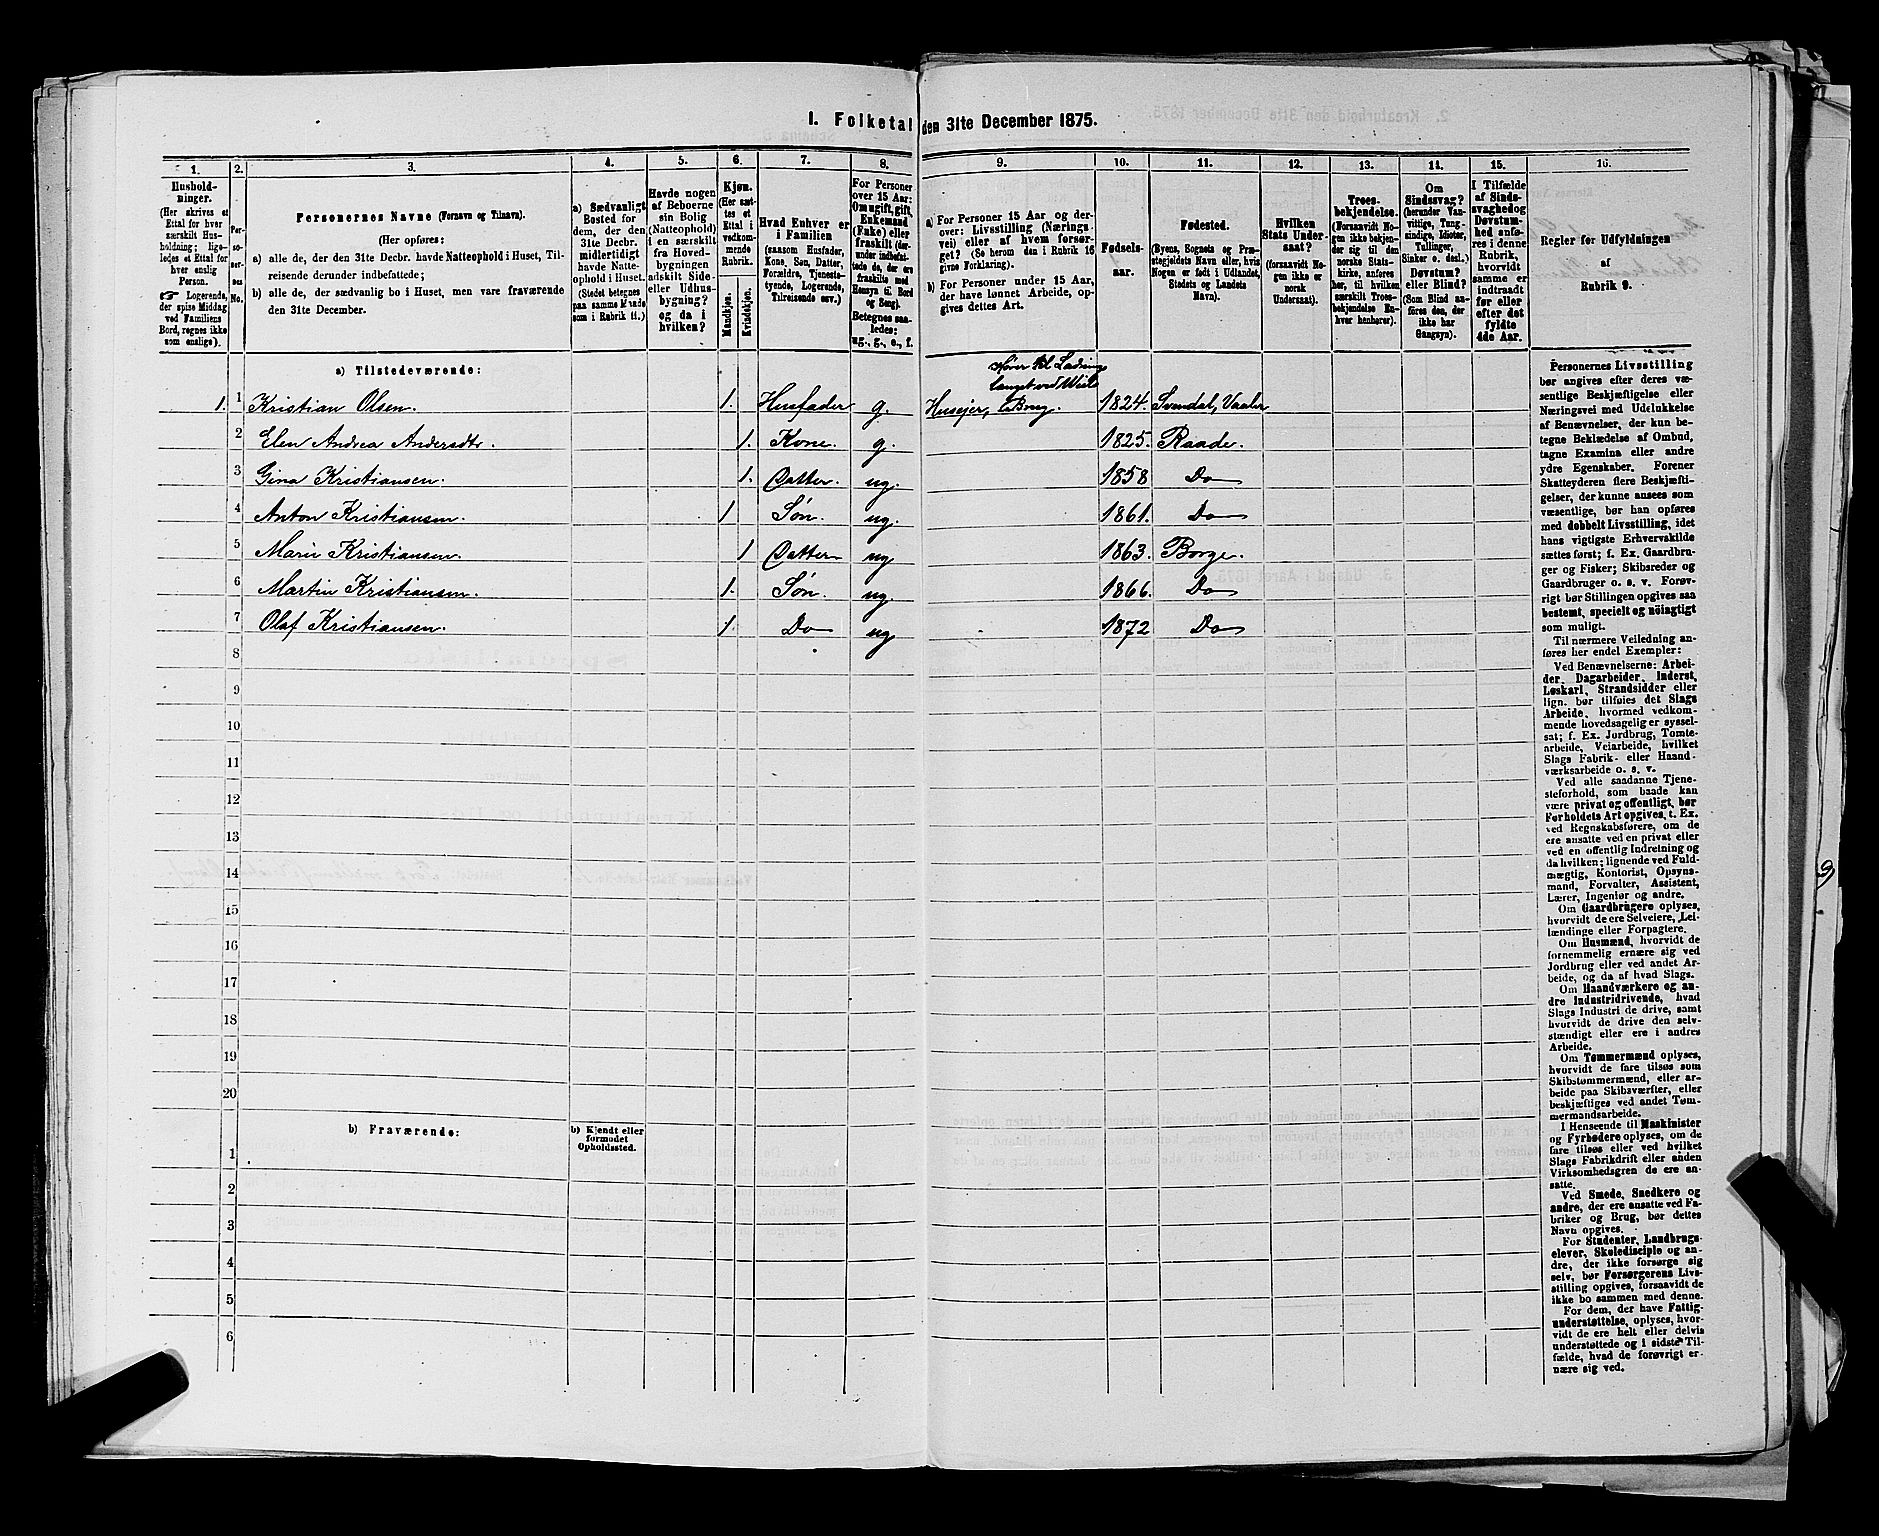 1. Folketal den 31te December 1875.
1. 2. 3. 4. 5. 6. 7. 8. 9. 10. 11. 12. 13. 14. 15. 16.
Hushold-
ninger.
(Her skrives et
Ettal for hver
særskilt Hus-
holdning; lige-
ledes et Ettal for
hver enslig
Person.
☞ Logerende,
der spise Middag
ved Familiens
Bord, regnes ikke
som enslige).
Per-
so-
ner-
nes
No.
Personernes Navne (Fornavn og Tilnavn).
(Her opføres:
a) alle de, der den 31te Decbr. havde Natteophold i Huset, Til-
reisende derunder indbefattede;
b) alle de, der sædvanlig bo i Huset, men vare fraværende
den 31te December.
a) Sædvanligt
Bosted for
dem, der den
31te Decbr.
midlertidigt
havde Natte-
ophold i Huset.
(Stedet betegnes
paa samme Maade
som i Rubrik 11.)
Havde nogen
af Beboerne
sin Bolig
(Natteophold)
i en særskilt
fra Hoved-
bygningen
adskilt Side-
eller Udhus-
bygning?
og da i
hvilken?
Kjøn.
(Her sæt-
tes et
Ettal i
vedkom-
mende
Rubrik.
Mandkjøn.
Kvindekjøn.
Hvad Enhver er
i Familien
(saasom Husfader,
Kone, Søn, Datter,
Forældre, Tjeneste-
tyende, Logerende,
Tilreisende osv.)
For Personer
over 15 Aar:
Om ugift, gift,
Enkemand
(Enke) eller
fraskilt (der-
under indbefat-
tede de, der ere
fraskilte med
Hensyn til Bord
og Seng).
Betegnes saa-
ledes:
ug., g., e., f.
a) For Personer 15 Aar og der-
over: Livsstilling (Nærings-
vei) eller af hvem forsør-
get? (Se herom den i Rubrik 16
givne Forklaring).
b) For Personer under 15 Aar,
der have lønnet Arbeide, op-
gives dettes Art.
Fødsels-
aar.
Fødested.
(Byens, Sognets og Præ-
stegjeldets Navn eller, hvis
Nogen er født i Udlandet,
Stedets og Landets
Navn).
Hvilken
Stats Under-
saat?
(forsaavidt No-
gen ikke er
norsk
Undersaat).
Troes-
bekjendelse.
(Forsaavidt No-
gen ikke bekjen-
der sig til den
norske Stats-
kirke, anføres
her, til hvilken
særskilt Troes-
bekjendelse En-
hver henhører).
Om
Sindssvag?
(herunder Van-
vittige, Tung-
sindige, Idioter,
Tullinger,
Sinker o. desl.)
Døvstum?
eller Blind?
(Som Blind an-
føres den, der
ikke har
Gangsyn).
I Tilfælde
af Sinds-
svaghed og
Døvstum-
hed anfø-
res i denne
Rubrik,
hvorvidt
samme er
indtraadt
før eller
efter det
fyldte
4de Aar.
Regler for Udfyldningen
af
Rubrik 9.
a) Tilstedeværende:
Hører til
1. 1 Kristian Olsen. 1. Husfader g. Huseier, 1824. Svindal, Vaaler
2 Elen Andrea Andersdtr. 1. Kone. g. 1825. Raade.
3 Gina Kristiansen. 1. Datter. ug. 1858 Do
4 Anton Kristiansen. 1 Søn. ug. 1861. Do
5 Marie Kristiansen. 1 Datter ug 1863. Borge.
6 Martin Kristiansen. 1. Søn. ug. 1866. Do
7 Olaf Kristiansen. 1. Do ug 1872 Do
8
9
10
11
12
13
14
15
16
17
18
19
20
b) Fraværende:
b) Kjendt eller
formodet
Opholdssted.
1
2
3
4
5
6
Personernes Livsstilling
bør angives efter deres væ-
sentlige Beskjæftigelse eller
Næringsvei med Udelukkelse
af Benævnelser, der kun be-
tegne Beklædelse af Ombud,
tagne Examina eller andre
ydre Egenskaber. Forener
Skatteyderen flere Beskjæfti-
gelser, der kunne ansees som
væsentlige, bør han opføres
med dobbelt Livsstilling, idet
hans vigtigste Erhvervskilde
sættes først; f. Ex. Gaardbru-
ger og Fisker; Skibsreder og
Gaardbruger o. s. v. Forøv-
rigt bør Stillingen opgives saa
bestemt, specielt og nöiagtigt
som muligt.
Til nærmere Veiledning an-
føres her endel Exempler:
Ved Benævnelserne: Arbei-
der, Dagarbeider, Inderst,
Løskarl, Strandsidder eller
lign. bør tilføies det Slags
Arbeide, hvormed vedkom-
mende hovedsagelig er syssel-
sat; f. Ex. Jordbrug, Tomte-
arbeide, Veiarbeide, hvilket
Slags Fabrik- eller Haand-
værksarbeide o. s. v.
Ved alle saadanne Tjene-
steforhold, som baade kan
være privat og offentligt, bør
Forholdets Art opgives, t. Ex.
ved Regnskabsførere, om de
ere ansatte ved en privat eller
ved en offentlig Indretning og
da hvilken; lignende ved Fuld-
mægtig, Kontorist, Opsyns-
mand, Forvalter, Assistent,
Lærer, Ingeniør og andre.
Om Gaardbrugere oplyses,
hvorvidt de ere Selveiere, Lei-
lændinge eller Forpagtere.
Om Husmænd, hvorvidt de
fornemmelig ernære sig ved
Jordbrug eller ved andet Ar-
beide, og da af hvad Slags.
Om Haandværkere og an-
dre Industridrivende, hvad
Slags Industri de drive, samt
hvorvidt de drive den selv-
stændigt eller ere i andres
Arbeide.
Om Tømmermænd oplyses,
hvorvidt de fare tilsøs som
Skibstømmermænd, eller ar-
beide paa Skibsværfter, eller
beskjæftiges ved andet Tøm-
mermandsarbeide.
I Henseende til Maskinister
og Fyrbødere oplyses, om de
fare tilsøs eller ved hvilket
Slags Fabrikdrift eller anden
Virksomhedsgren de ere an-
satte.
Ved Smede, Snedkere og
andre, der ere ansatte ved Fa-
briker og Brug, bør dettes
Navn opgives.
For Studenter, Landbrugs-
elever, Skoledisciple og an-
dre, der ikke forsørge sig
selv, bør Forsørgerens Livs-
stilling opgives, forsaavidt de
ikke bo sammen med denne.
For dem, der have Fattig-
understøttelse, oplyses, hvor-
vidt de ere helt eller delvis
understøttede og i sidste Til-
fælde, hvad de forøvrigt er-
nære sig ved.